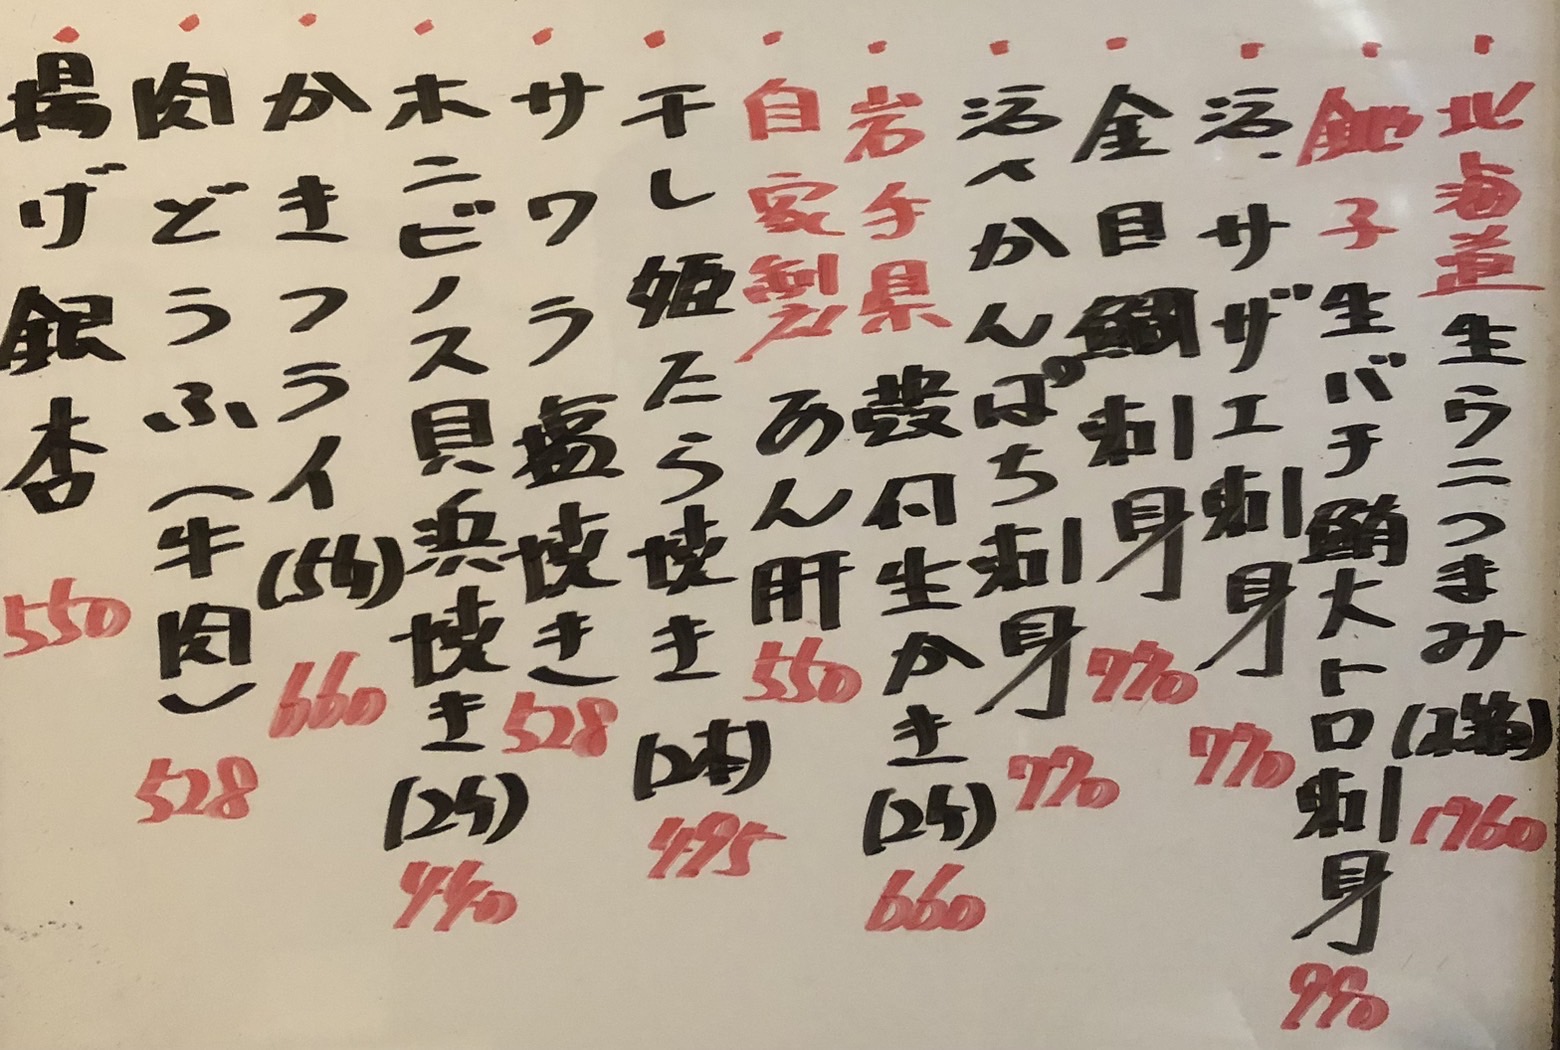 北海道生ウニつまみ(1箱)1960
銚子生バチ鮪大トロ刺身990
活、サザエ刺身770
金目鯛刺身770
活〆かんぱち刺身770
岩手県殻付生かき(2ケ)660
自家製あん肝550
干し姫たら焼き(2本)495
サワラ塩焼き528
ホンビノス貝浜焼き(2ケ)440
かきフライ(5ケ)660
肉どうふ(牛肉)528
揚げ銀杏550